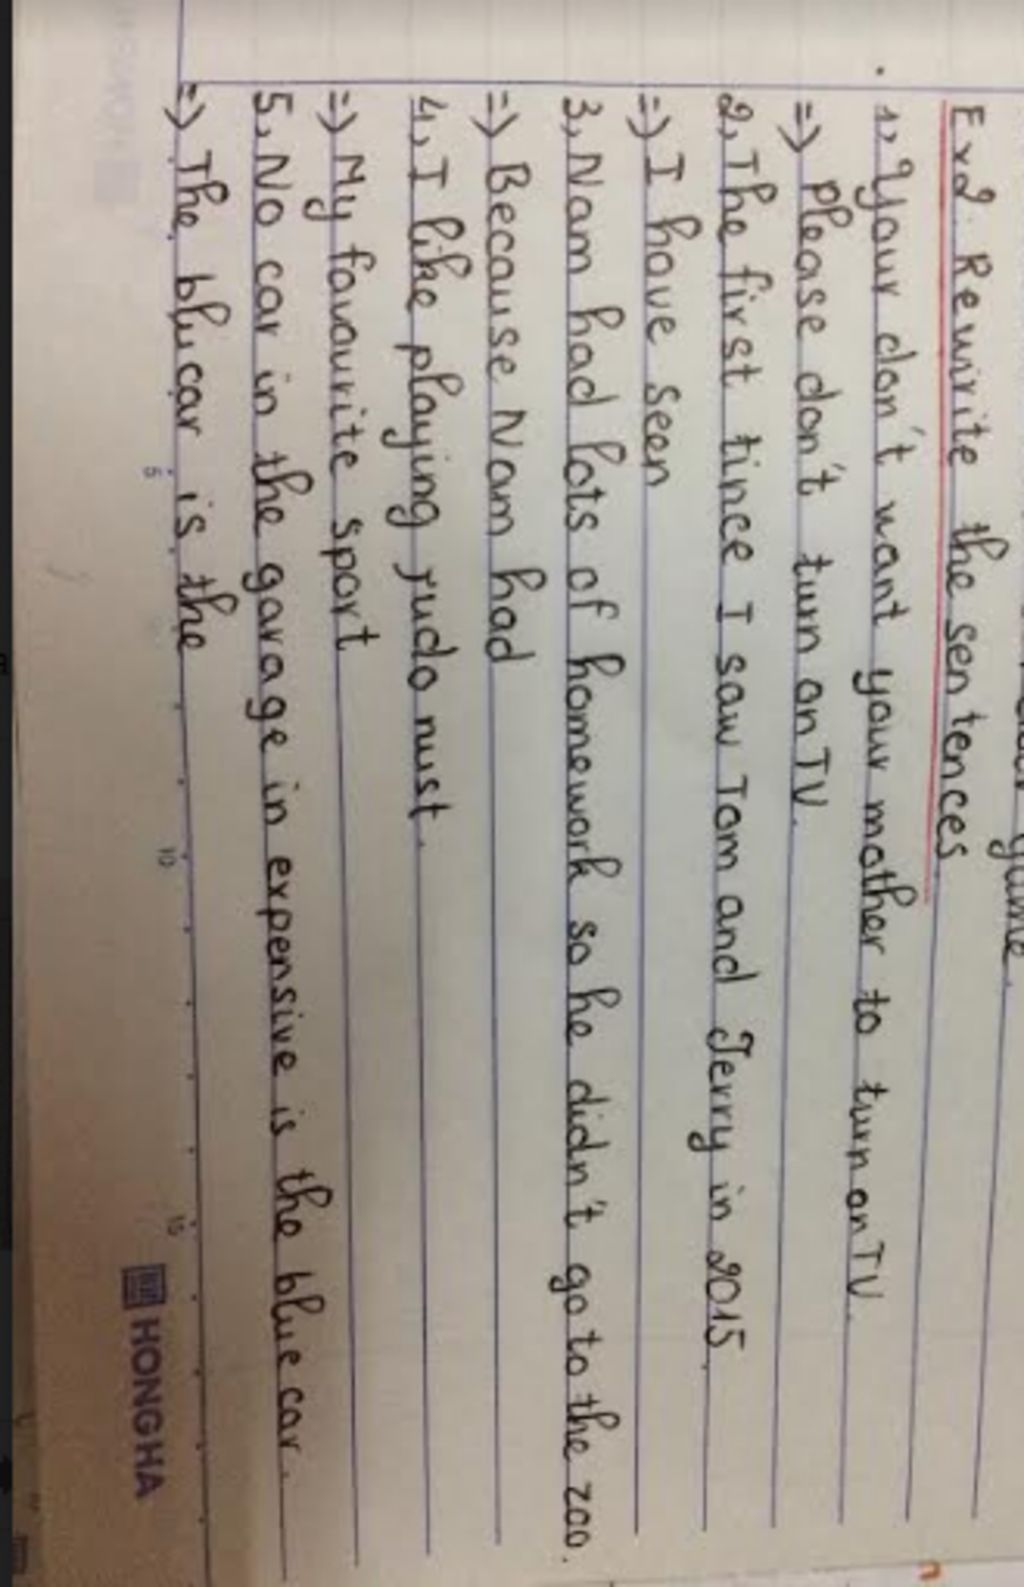 game.
Ex2. Rewrite the sentences
1, Your don't want your mother to turn on TV.
=) Please don't turn on TV.
2, The first tince I saw Tom and Jerry in 2015.
=) I have seen
3, Nam had lots of homework so he didn't go to the zoo.
=) Because Nam had
4, I like playing judo nust.
=) My favourite sport
5, No car in the garage in expensive is the blue car.
=) The blu car is the
5 10 15
HONGHA